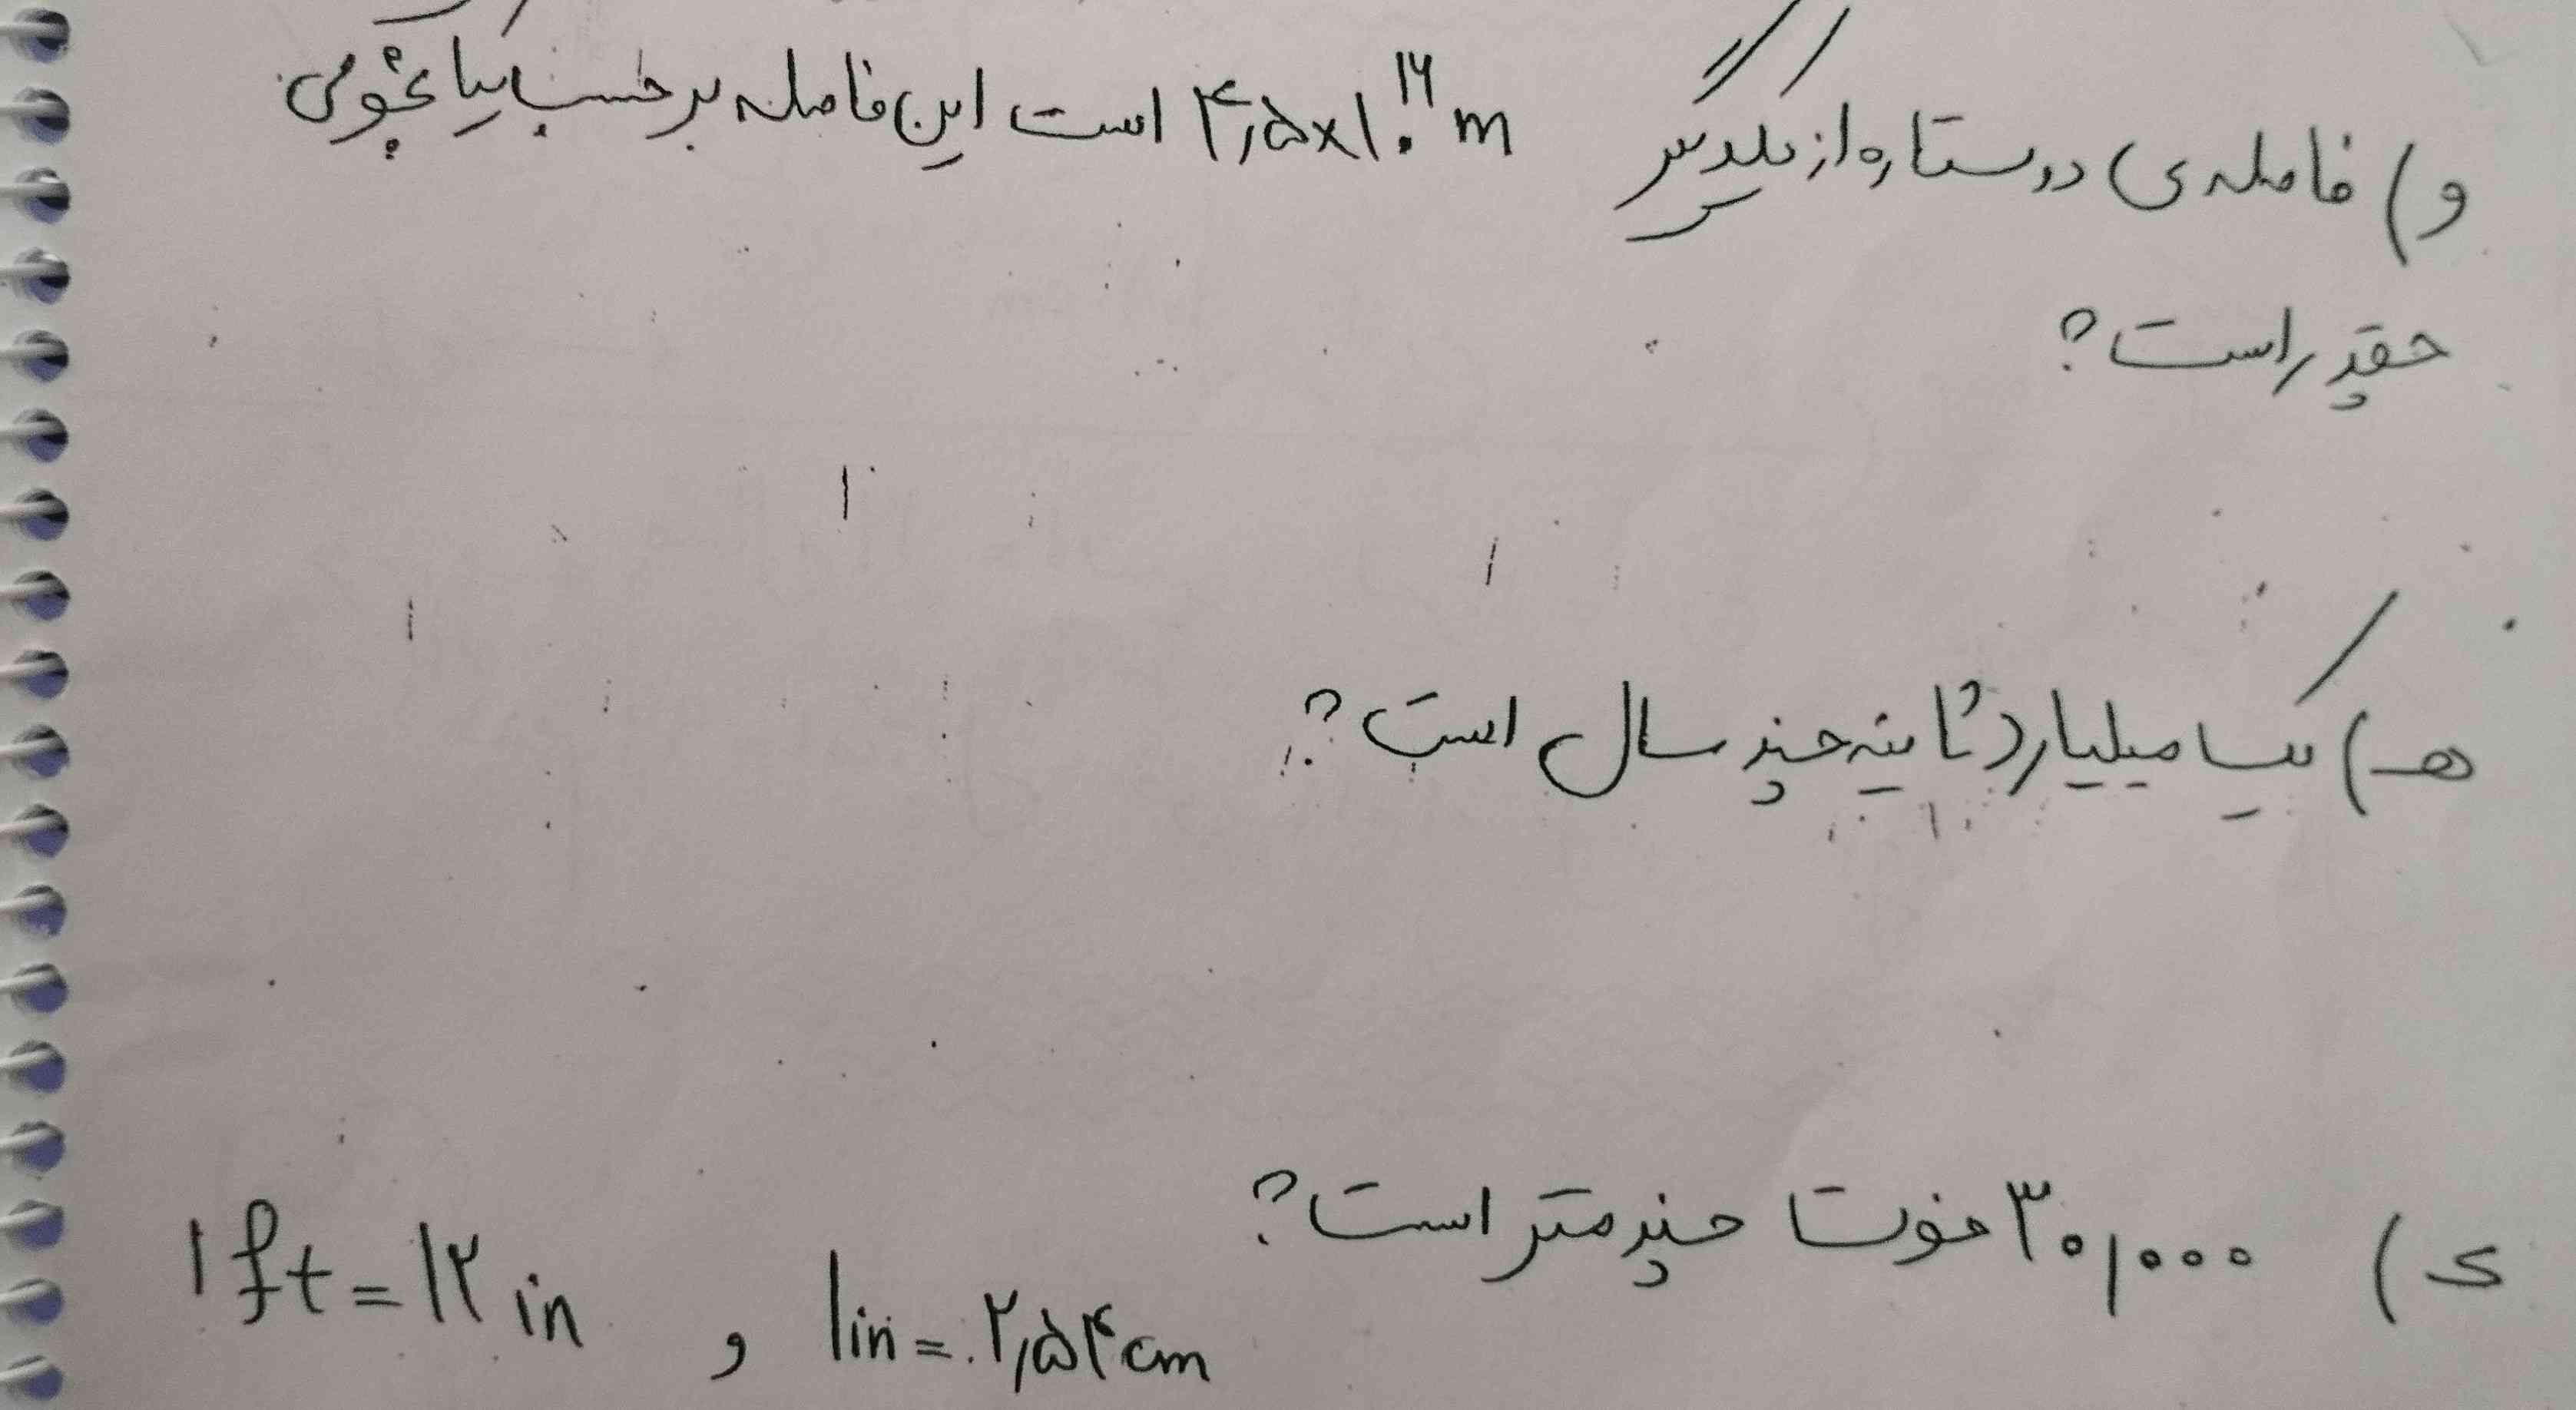 و) فاصله ی دو ستاره از یکدیگر ۴٫۵×۱۰^۱۶ m است این فاصله بر حسب یکای نجومی
چقدر است؟
هـ) یک میلیارد ثانیه چند سال است؟
ی) ۳۰٫۰۰۰ فوت چند متر است؟
۱ft = ۱۲ in و ۱in = ۲٫۵۴ cm